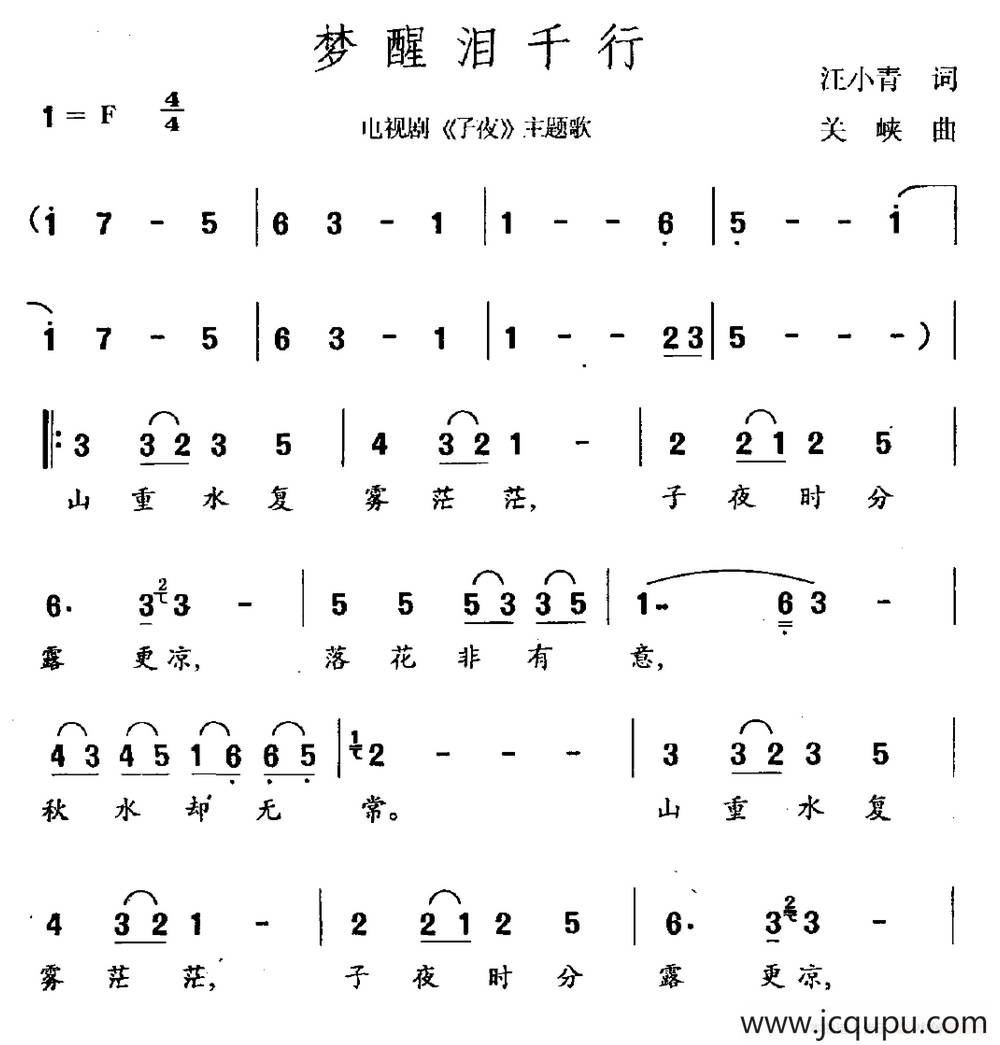 梦醒泪千行
1 = F 4/4
电视剧《子夜》主题歌
汪小青 词
关峡 曲
( i 7 - 5 | 6 3 - 1 | 1 - - 6 | 5 - - i |
i 7 - 5 | 6 3 - 1 | 1 - - 2 3 | 5 - - - ) |
‖: 3 3 2 3 5 | 4 3 2 1 - | 2 2 1 2 5 |
山 重 水 复 雾 茫 茫, 子 夜 时 分
6. 3 2 3 - | 5 5 5 3 3 5 | 1·· 6 3 - |
露 更 凉, 落 花 非 有 意,
4 3 4 5 1 6 6 5 | 1 2 - - - | 3 3 2 3 5 |
秋 水 却 无 常。 山 重 水 复
4 3 2 1 - | 2 2 1 2 5 | 6. 3 2 3 - |
雾 茫 茫, 子 夜 时 分 露 更 凉,
www.jcqupu.com